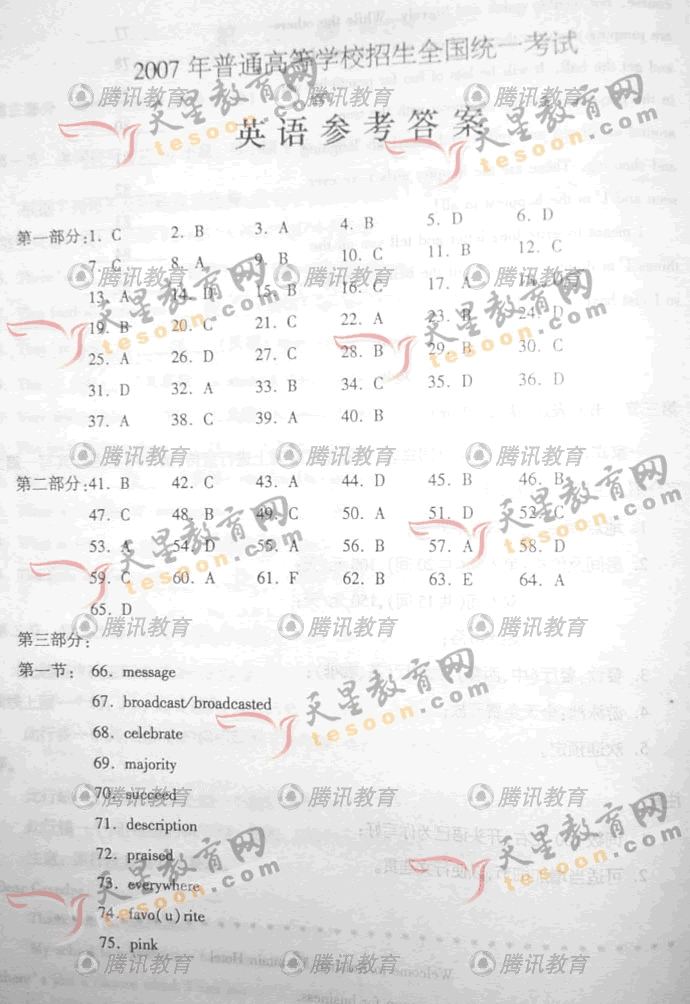 2007年普通高等学校招生全国统一考试
英语参考答案
第一部分:1. C 2. B 3. A 4. B 5. D 6. D
7. C 8. A 9. B 10. C 11. B 12. C
13. A 14. D 15. B 16. C 17. A 18. D
19. B 20. C 21. C 22. A 23. B 24. D
25. A 26. D 27. C 28. B 29. B 30. C
31. D 32. A 33. B 34. C 35. D 36. D
37. A 38. C 39. A 40. B
第二部分:41. B 42. C 43. A 44. D 45. B 46. B
47. C 48. B 49. C 50. A 51. D 52. C
53. A 54. D 55. A 56. B 57. A 58. D
59. C 60. A 61. F 62. B 63. E 64. A
65. D
第三部分:
第一节: 66. message
67. broadcast/broadcasted
68. celebrate
69. majority
70. succeed
71. description
72. praised
73. everywhere
74. favo(u)rite
75. pink
腾讯教育
天星教育网
tesoon.com